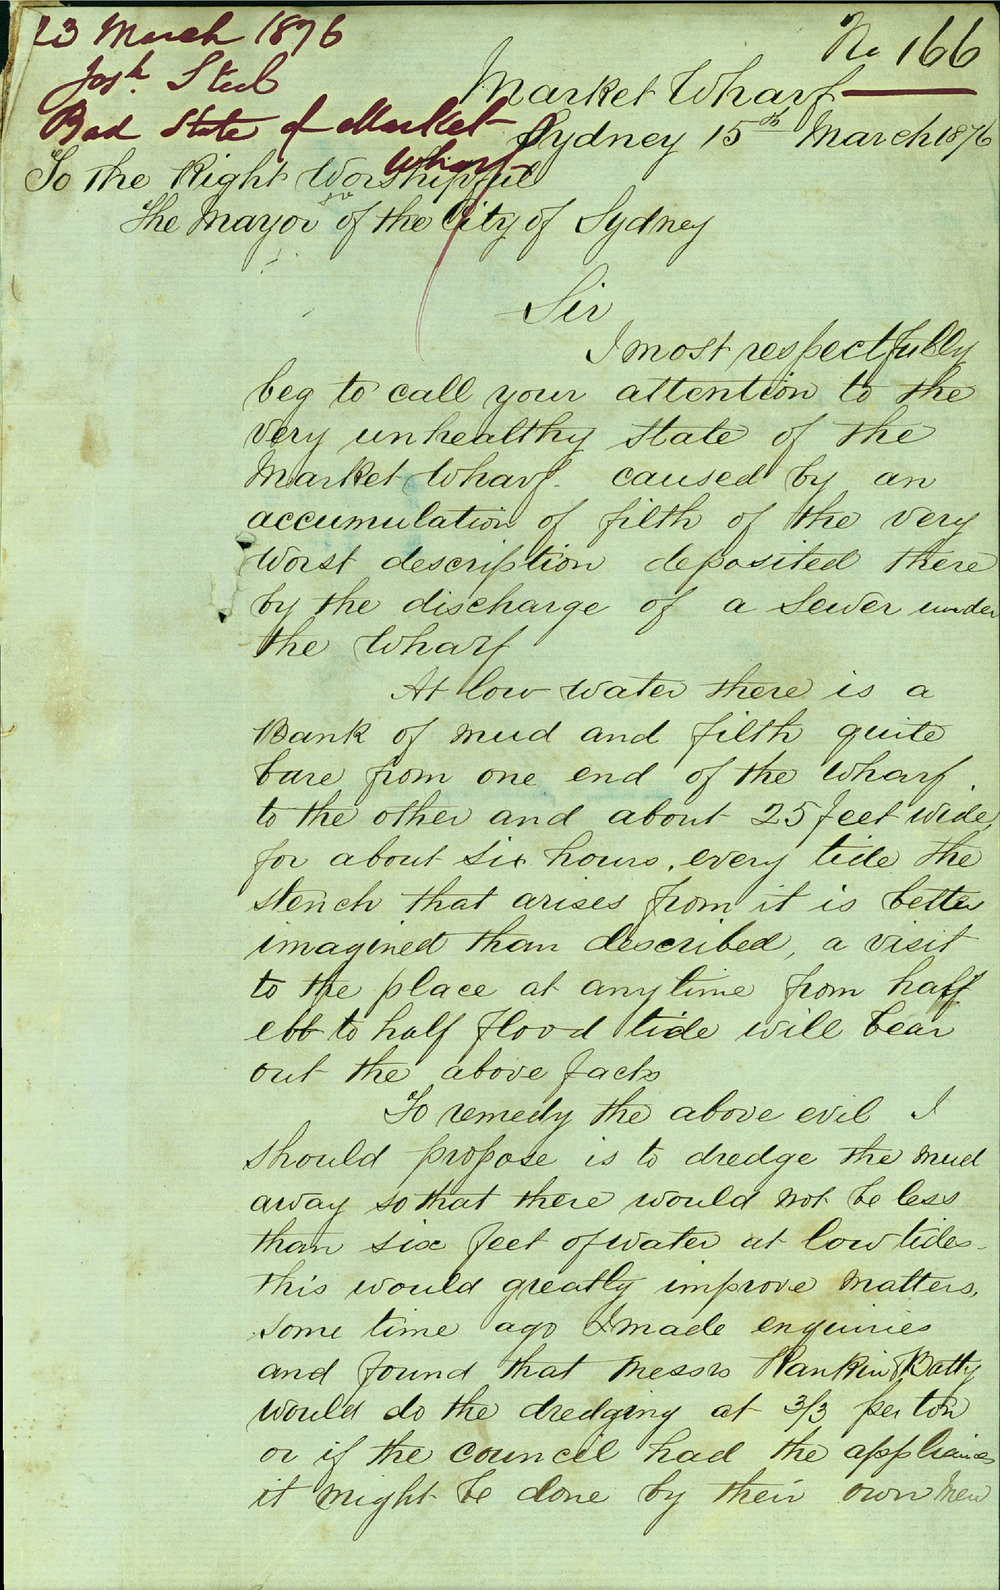 23 March 1876
Josh. Steel
Bad State of Market
Wharf
No 166
Market Wharf
Sydney 15th March 1876
To the Right Worshipful
The Mayor of the City of Sydney
Sir
I most respectfully
beg to call your attention to the
very unhealthy state of the
Market Wharf. caused by an
accumulation of filth of the very
worst description deposited there
by the discharge of a Sewer under
the Wharf
At low water there is a
Bank of mud and filth quite
bare from one end of the wharf
to the other and about 25 feet wide,
for about six hours, every tide the
stench that arises from it is better
imagined than described, a visit
to the place at any time from half
ebb to half flood tide will bear
out the above facts
To remedy the above evil I
should propose is to dredge the mud
away so that there would not be less
than six feet of water at low tides.
this would greatly improve matters,
some time ago I made enquiries
and found that Messrs Rankin & Batty
would do the dredging at 3/3 per ton
or if the council had the appliances
it might be done by their own men